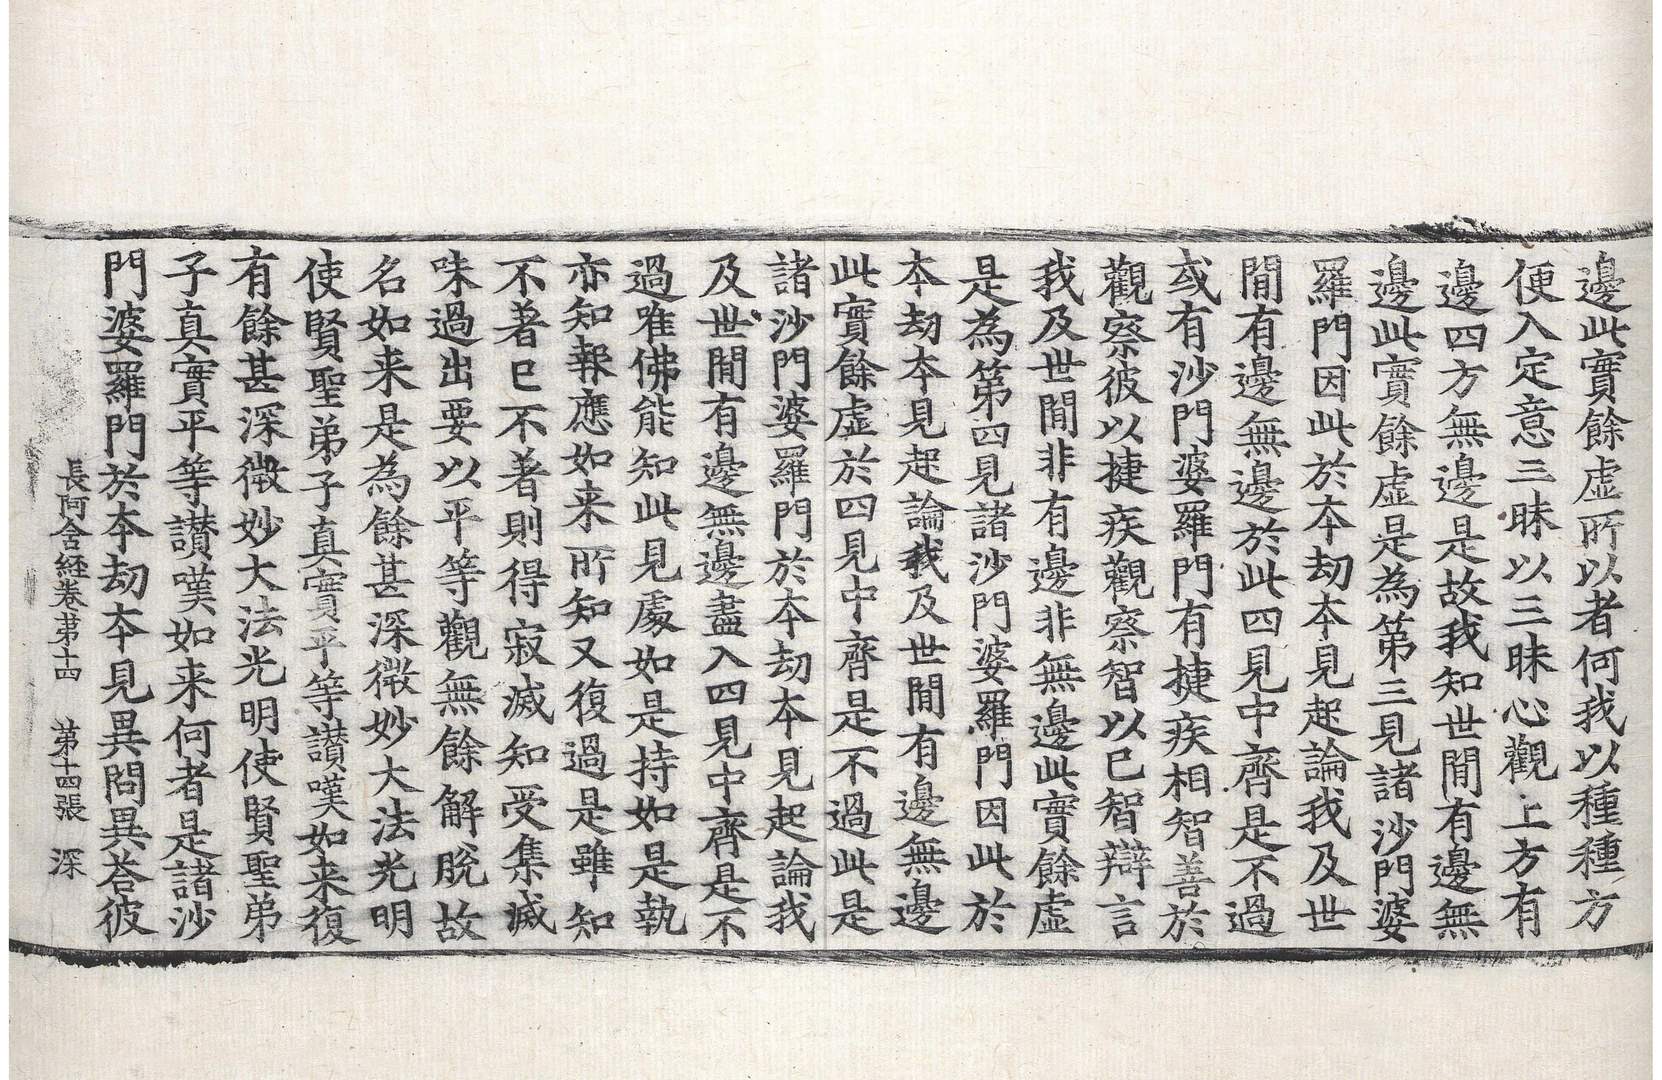 邊此實餘虛所以者何我以種種方
便入定意三昧以三昧心觀上方有
邊四方無邊是故我知世閒有邊無
邊此實餘虛是為第三見諸沙門婆
羅門因此於本劫本見起論我及世
閒有邊無邊於此四見中齊是不過
或有沙門婆羅門有捷疾相智善於
觀察彼以捷疾觀察智以己智辯言
我及世閒非有邊非無邊此實餘虛
是為第四見諸沙門婆羅門因此於
本劫本見起論我及世閒有邊無邊
此實餘虛於四見中齊是不過此是
諸沙門婆羅門於本劫本見起論我
及世閒有邊無邊盡入四見中齊是不
過唯佛能知此見處如是持如是執
亦知報應如来所知又復過是雖知
不著已不著則得寂滅知受集滅
味過出要以平等觀無餘解脫故
名如来是為餘甚深微妙大法光明
使賢聖弟子真實平等讃嘆如来復
有餘甚深微妙大法光明使賢聖弟
子真實平等讃嘆如来何者是諸沙
門婆羅門於本劫本見異問異荅彼
長阿含経卷苐十四 第十四張 深